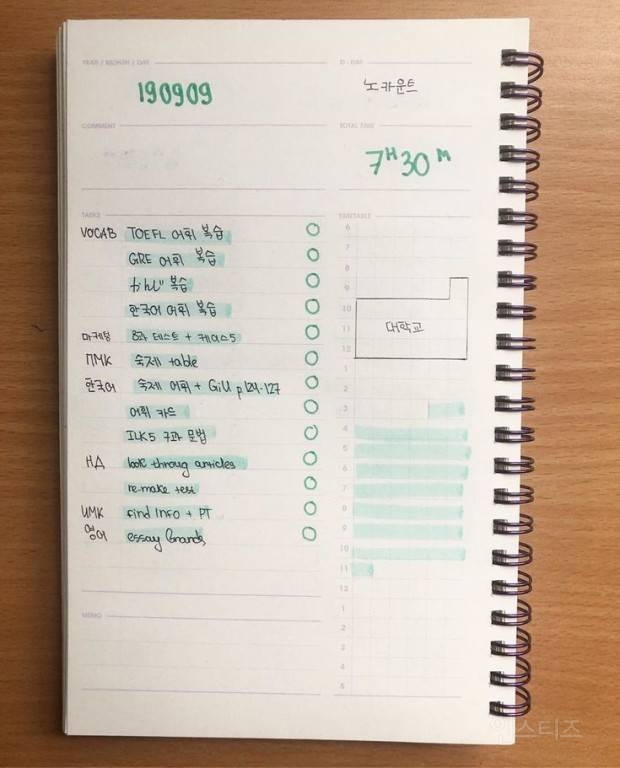 YEAR / MONTH / DAY
D-DAY
190909
노카운트
COMMENT
TOTAL TIME
7H 30M
TASKS
TIMETABLE
VOCAB TOEFL 어휘 복습
GRE 어휘 복습
かんじ 복습
한국어 어휘 복습
마케팅 8과 테스트 + 케이스5
ПМК 숙제 table
한국어 숙제 어휘 + Gill p 124-127
어휘 카드
ILK5 7과 문법
НД look throug articles
re-make test
UMK find info + PT
영어 essay
6
7
8
9
10
11
12
1
2
3
4
5
6
7
8
9
10
11
12
1
2
3
4
5
대학교
MEMO
인스티즈